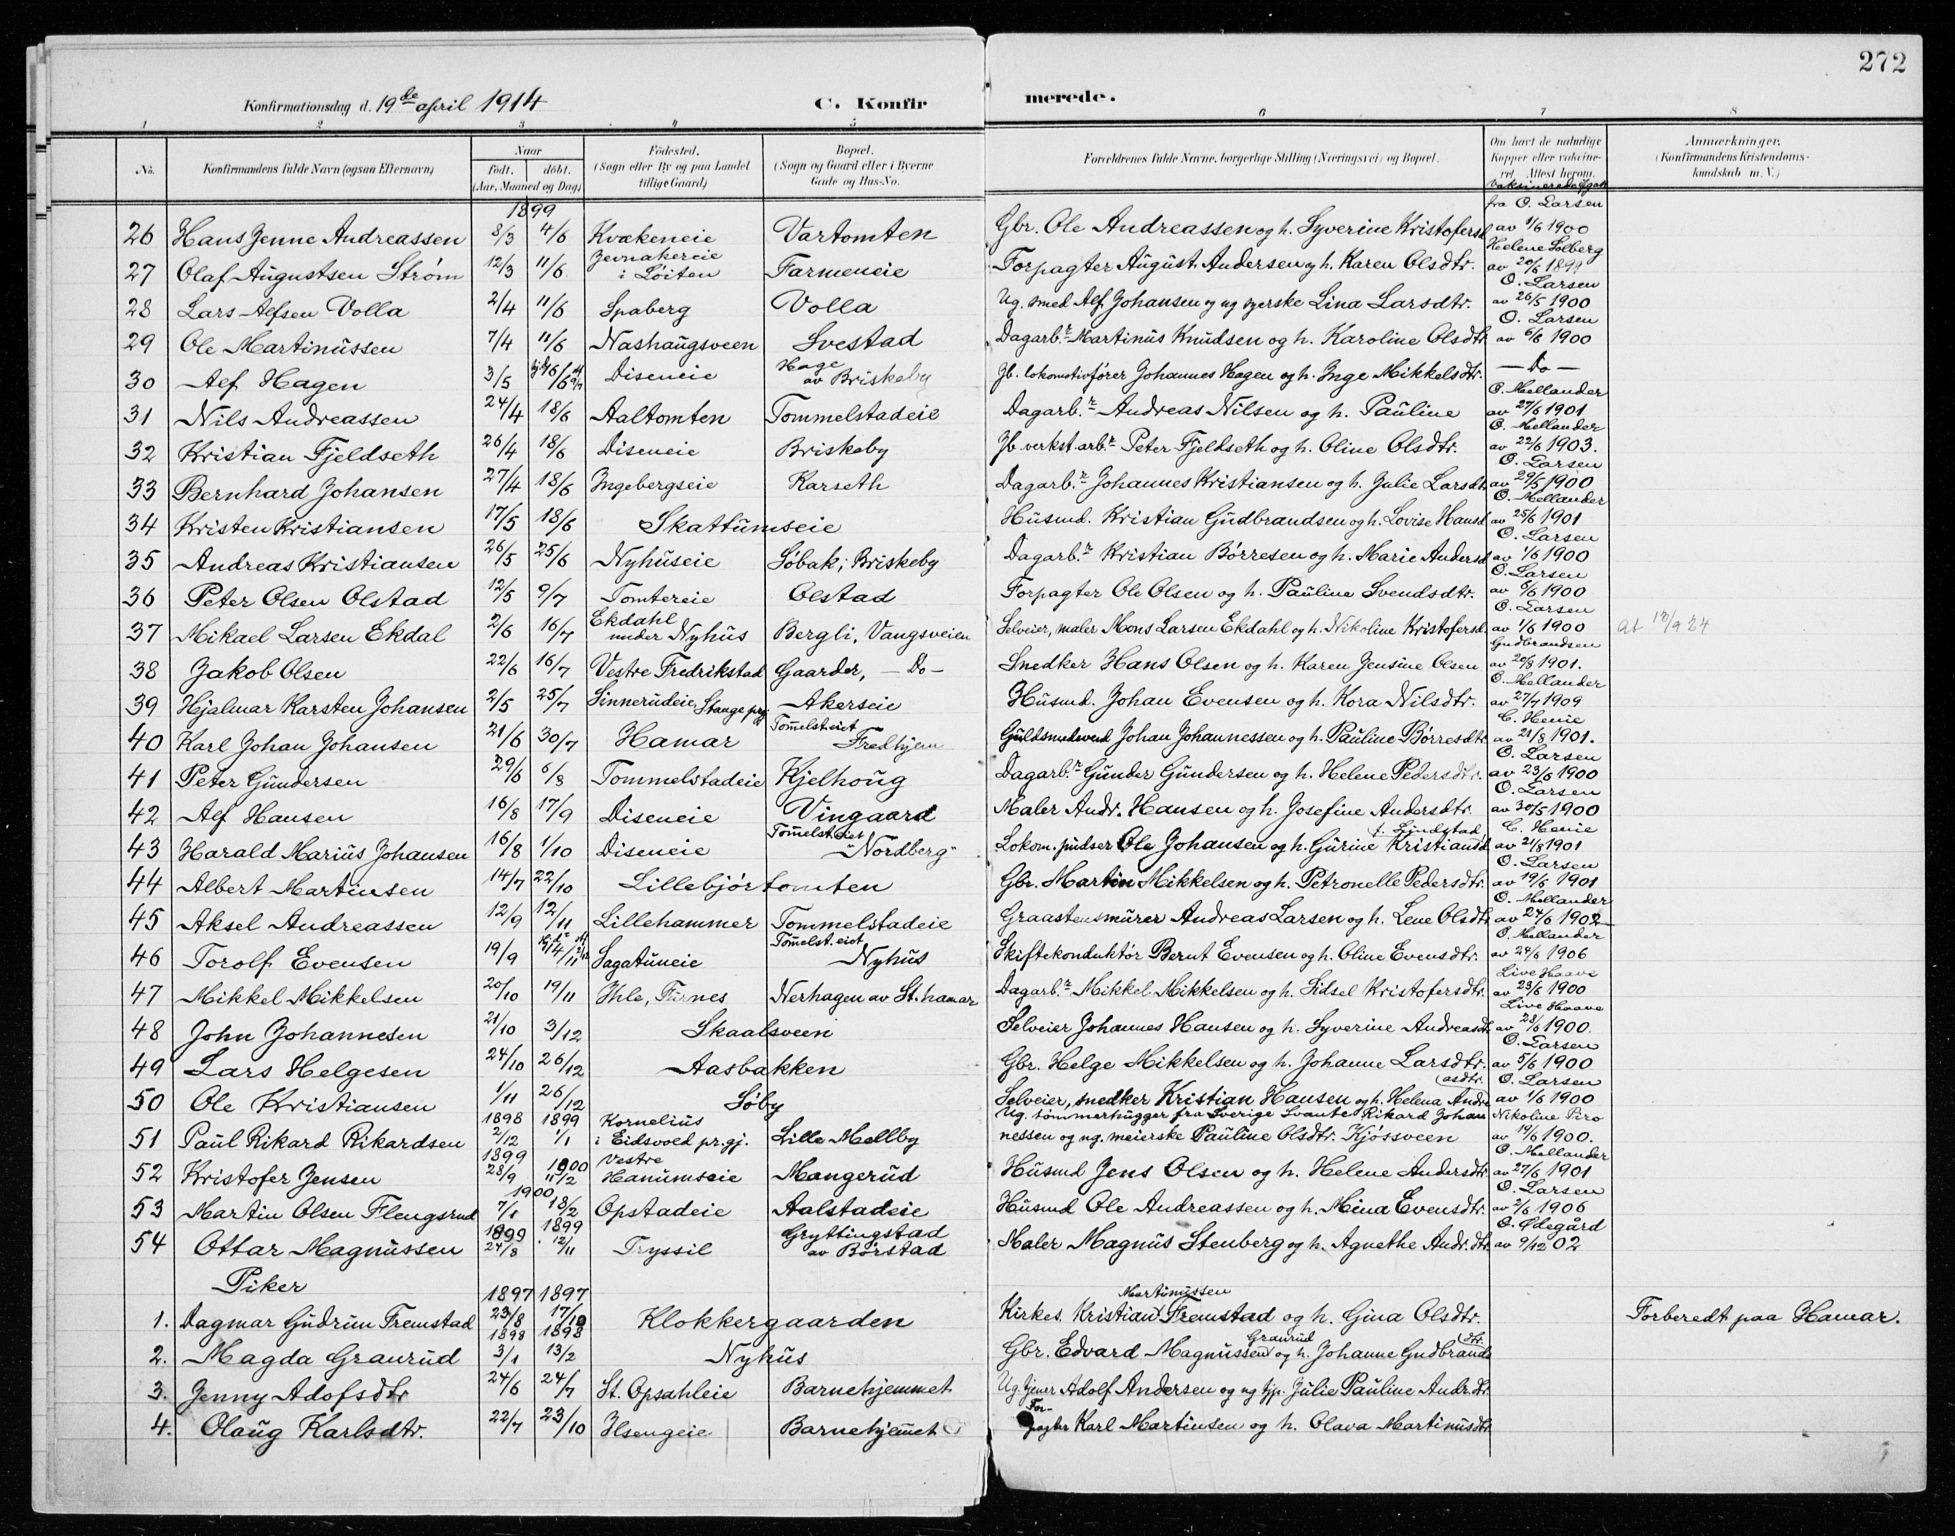 272
Konfirmationsdag d. 19de april 1914 C. Konfirmerede.
1 2 3 4 5 6 7 8
No. Konfirmandens fulde Navn (ogsaa Efternavn) Naar født. døbt. (Aar, Maaned og Dag) Fødested. (Sogn eller By og paa Landet tillige Gaard) Bopæl. (Sogn og Gaard eller i Byerne Gade og Hus-No. Forældrenes fulde Navne, borgerlige Stilling (Næringsvei) og Bopæl. Om havt de naturlige Kopper eller vakcineret. Attest herom. Anmærkninger. (Konfirmandens Kristendomskundskab m. V.)
1899
26 Hans Jenne Andreassen 8/3 4/6 Kvækeneie Vartomten Gbr. Ole Andreassen og h. Syverine Kristofersd. fra O. Larsen av 1/6 1900
27 Olaf Augustsen Strøm 12/3 11/6 Jevnakereie i Løiten Farmeneie Forpagter August Andersen og h. Karen Olsdtr. Helene Solberg av 20/6 1899
28 Lars Alfsen Volla 2/4 11/6 Spaberg Volla Ug. smed Alf Johansen og ug syerske Lina Larsdtr. O. Larsen av 26/5 1900
29 Ole Martinussen 7/4 11/6 Nashaugsveen Svestad Dagarb.r Martinus Knudsen og h. Karoline Olsdtr. O. Larsen av 6/6 1900
30 Alf Hagen 3/5 Diseneie Hage av Briskeby Jb. lokomotivfører Johannes Hagen og h. Inge Mikkelsdtr. — Do —
31 Nils Andreassen 24/4 18/6 Aaltomten Tommelstadeie Dagarb.r Andreas Nilsen og h. Pauline O. Mellander av 27/6 1901
32 Kristian Fjeldseth 26/4 18/6 Diseneie Briskeby Jb. verkst.arbr Peter Fjeldseth og h. Oline Olsdtr. O. Mellander av 22/6 1903.
33 Bernhard Johansen 27/4 18/6 Ingebergseie Karseth Dagarb.r Johannes Kristiansen og h. Julie Larsdtr. O. Larsen av 29/5 1900
34 Kristen Kristiansen 17/5 18/6 Skattumseie Husmd. Kristian Gudbrandsen og h. Lovise Hansd. O. Mellander av 25/6 1901
35 Andreas Kristiansen 26/5 25/6 Nyhuseie Søbak, Briskeby Dagarb.r Kristian Børresen og h. Marie Andersd. O. Larsen av 1/6 1900
36 Peter Olsen Olstad 12/5 9/7 Tomtereie Olstad Forpagter Ole Olsen og h. Pauline Svendsdtr. O. Larsen av 6/6 1900
37 Mikael Larsen Ekdal 2/6 16/7 Ekdahl under Nyhus Bergli, Vangsveien Selveier, maler Mons Larsen Ekdahl og h. Nikoline Kristofersd. O. Larsen av 1/6 1900 at 18/9 24
38 Jakob Olsen 22/6 16/7 Vestre Fredrikstad Gaarder, — Do — Snedker Hans Olsen og h. Karen Jensine Olsen Gudbrandsen av 20/8 1901.
39 Hjalmar Karsten Johansen 2/5 25/7 Sinnerudeie, Stange prgj. Akerseie Husmd. Johan Evensen og h. Kora Nilsdtr. O. Mellander av 27/7 1909
40 Karl Johan Johansen 21/6 30/7 Hamar Tommelst.eiet Fredhjem Guldsmedsvend Johan Johannessen og h. Pauline Børresdtr. C. Henie av 21/8 1901.
41 Peter Gundersen 29/6 6/8 Tommelstadeie Kjelhoug Dagarb.r Gunder Gundersen og h. Helene Pedersdtr. O. Larsen av 23/6 1900
42 Alf Hansen 16/8 17/9 Diseneie Vingaard Maler Andr. Hansen og h. Josefine Andersdtr. O. Larsen av 30/5 1900
43 Harald Marius Johansen 16/8 1/10 Diseneie Tommelst.eiet "Nordberg" Lokom. pudser Ole Johansen og h. Gurine Kristiansd. C. Henie av 21/8 1901
44 Albert Martinsen 14/7 22/10 Lillebjørtomten Gbr. Martin Mikkelsen og h. Petronelle Pedersdtr. O. Larsen av 19/6 1901
45 Aksel Andreassen 12/9 12/11 Lillehammer Tommelstadeie Graastensmurer Andreas Larsen og h. Lene Olsdtr. O. Mellander av 24/6 1902
46 Torolf Evensen 19/9 Sagatuneie Tommelst.eiet Nyhus Skiftekonduktør Bernt Evensen og h. Oline Evensdtr. O. Mellander av 24/6 1906
47 Mikkel Mikkelsen 20/10 19/11 Ihle, Furnes Nerhagen av St. hamar Dagarb.r Mikkel Mikkelsen og h. Sidsel Kristofersdtr. Live Haave av 23/6 1900
48 John Johannesen 21/10 3/12 Skaalsveen Selveier Johannes Hansen og h. Syverine Andreasdtr. Live Haave av 28/6 1900.
49 Lars Helgesen 24/10 26/12 Aasbakken Gbr. Helge Mikkelsen og h. Johanne Larsdtr. O. Larsen av 5/6 1900
50 Ole Kristiansen 1/11 26/12 Søby Selveier, snedker Kristian Hansen og h. Helena Andreasdtr. O. Larsen av 1/6 1900
51 Paul Rikard Rikardsen 1898 2/12 1899 1/1 Kornelius i Eidsvold pr.gj. Lille Mellby Ug. tømmerhugger fra Sverige Svante Rikard Johannessen og ug. meierske Pauline Olsdtr. Kjøssveen Nikoline Piro av 14/6 1900.
52 Kristofer Jensen 1899 28/9 1900 11/2 Vestre Hanumseie Mangerud Husmd Jens Olsen og h. Helene Andersdtr. O. Mellander av 27/6 1901
53 Martin Olsen Flengsrud 1900 7/1 18/2 Opstadeie Aalstadeie Husmd Ole Andreassen og h. Mina Evensdtr. O. Larsen av 2/6 1906
54 Ottar Magnussen 1899 24/8 1899 12/11 Tryssil Gryttingstad av Børstad Maler Magnus Stenberg og h. Agnethe Andr.dtr. O. Ødegård av 9/12 02
Piker
1. Dagmar Gudrun Fremstad 1897 23/8 1897 17/10 Klokkergaarden Kirkes. Kristian Martinussen Fremstad og h. Gina Olsdtr. Forberedt paa Hamar.
2. Magda Granrud 1898 3/1 1898 13/2 Nyhus Gbr. Edvard Magnussen Granrud og h. Johanne Gudbrandsdtr.
3. Jenny Adofsdtr 24/6 24/7 St. Opsahleie Barnehjemmet Ug. tjener Adolf Andersen og ug tjp. Julie Pauline Andr.dtr.
4. Olaug Karlsdtr. 22/7 23/10 Ilsengeie Barnehjemmet Forpagter Karl Martinsen og h. Olava Martinusdtr.